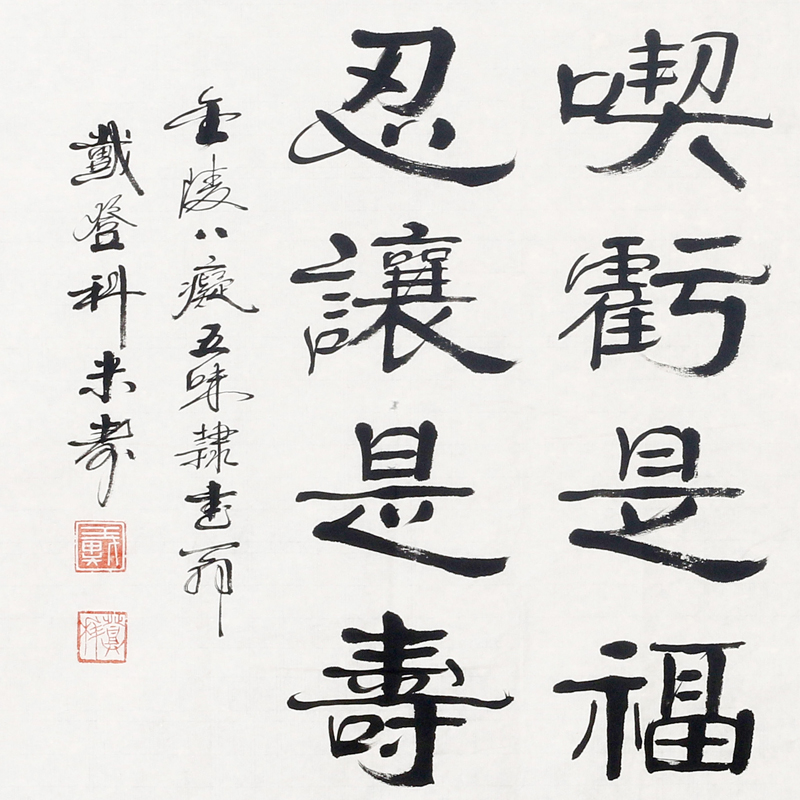 喫虧是福
忍讓是壽
金陵八癡五味隸書翁
戴登科米壽